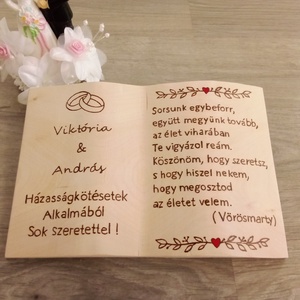 Viktória
&
András
Házasságkötésetek
Alkalmából
Sok szeretettel !
Sorsunk egybeforr,
együtt megyünk tovább,
az élet viharában
Te vigyázol reám.
Köszönöm, hogy szeretsz,
s hogy hiszel nekem,
hogy megosztod
az életet velem.
( Vörösmarty )